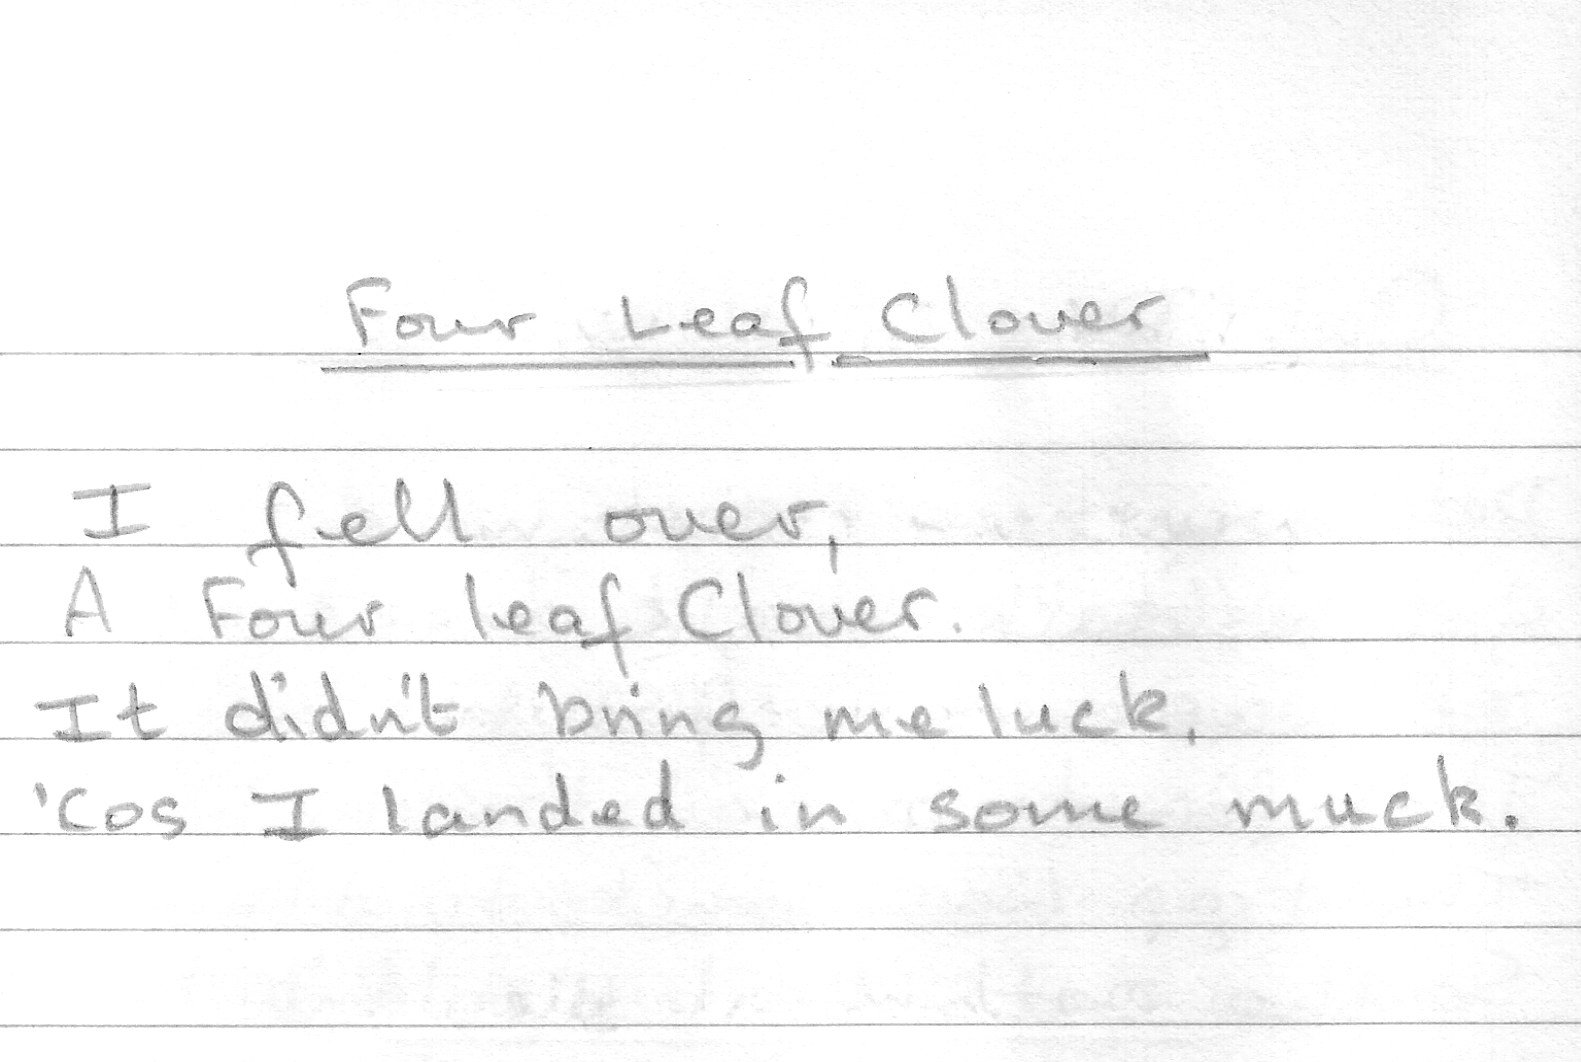 Four Leaf Clover
I fell over,
A Four leaf Clover.
It didn't bring me luck,
'Cos I landed in some muck.